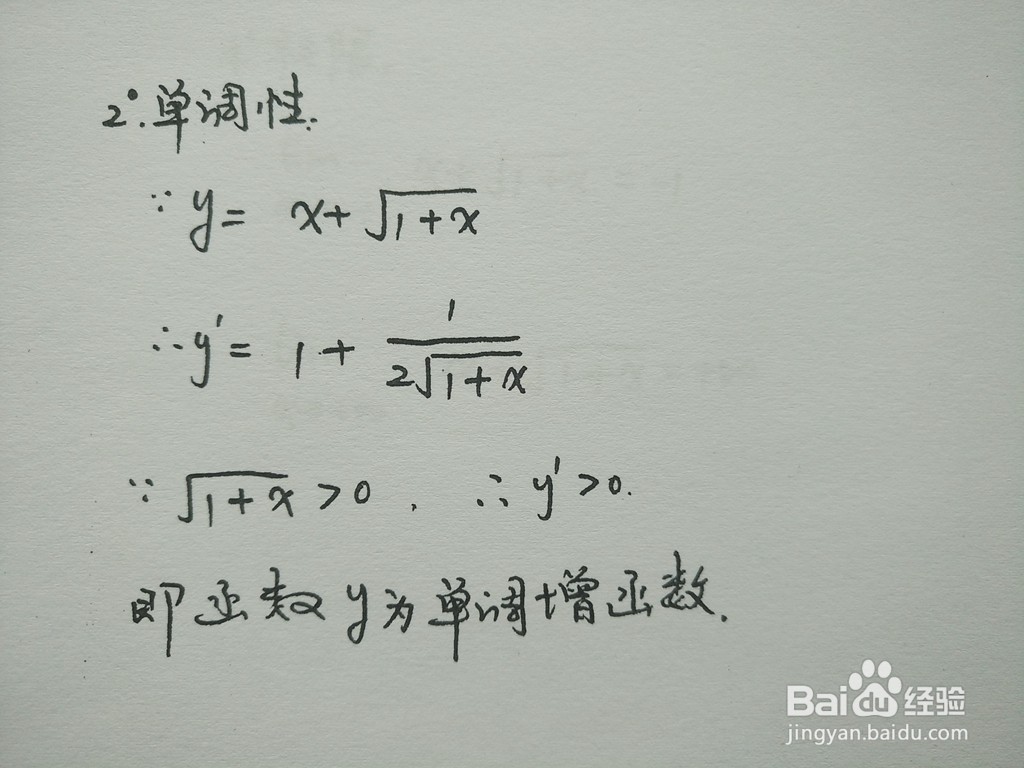 2°.单调性.
∵ y = x + √(1+x)
∴ y' = 1 + 1/(2√(1+x))
∵ √(1+x) > 0. ∴ y' > 0.
即函数y为单调增函数.
Baidu经验
jingyan.baidu.com